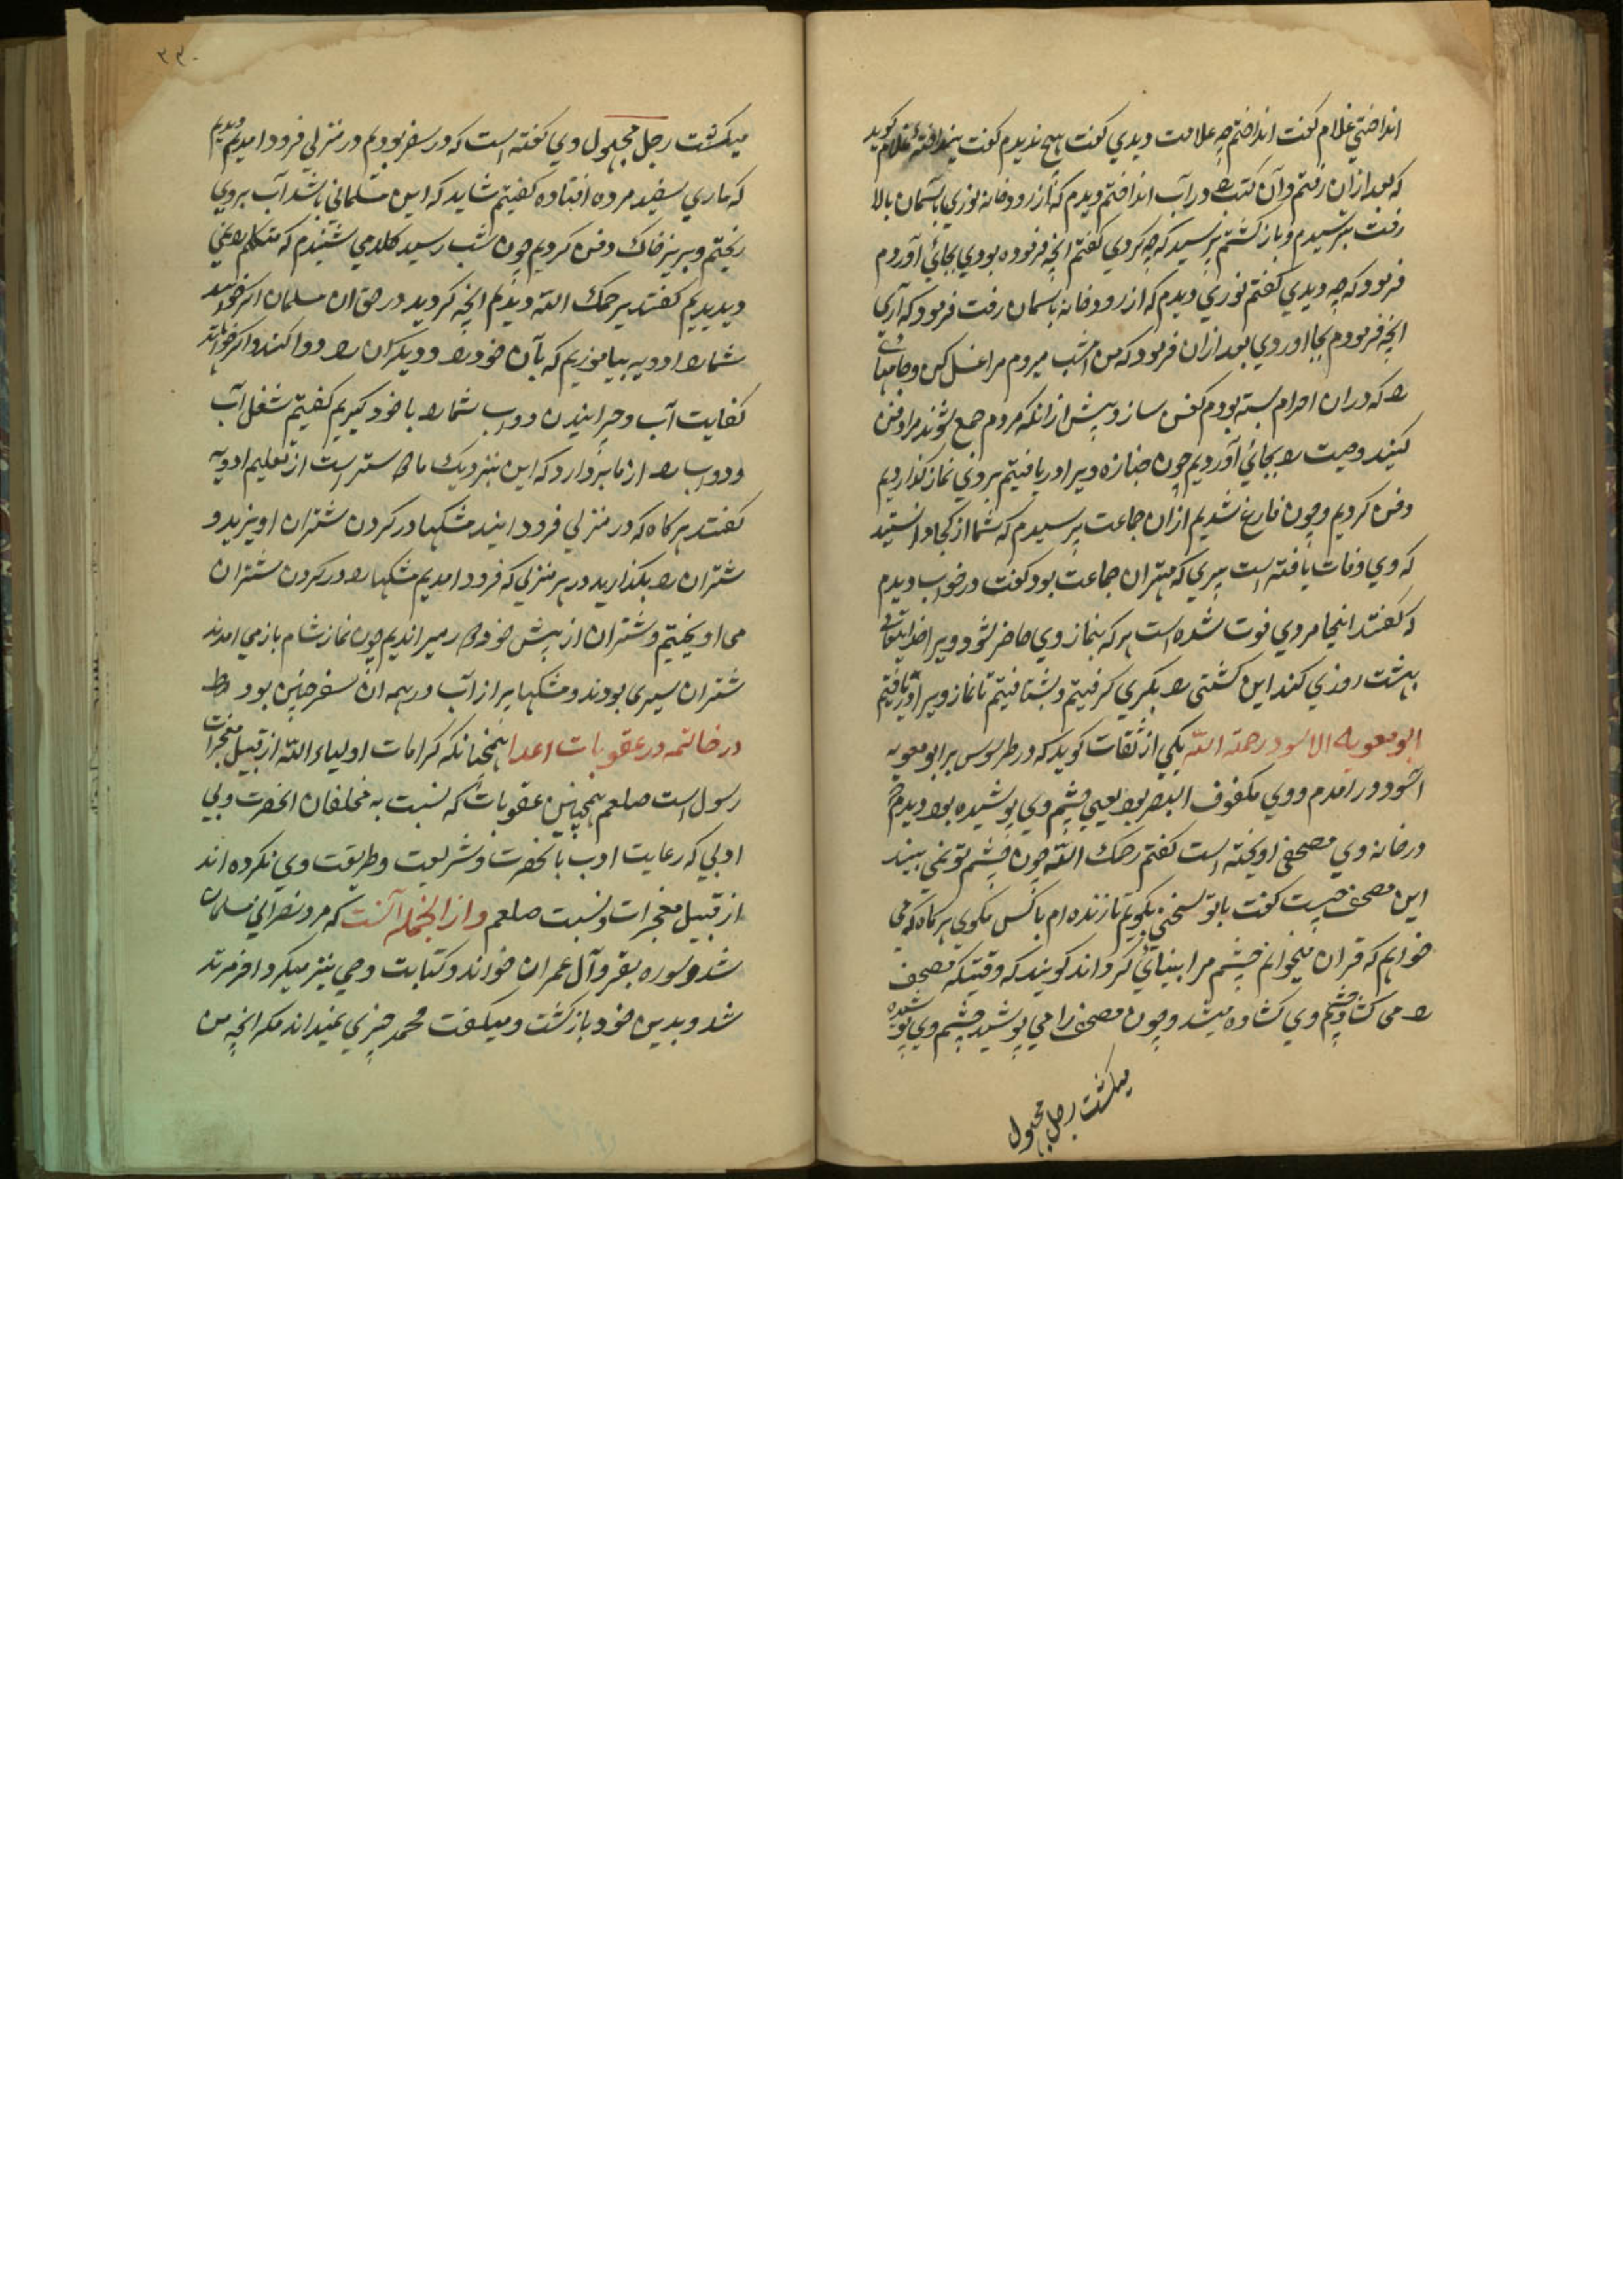 انداختی غلام گفت انداختم چه علامت دیدی گفت هیچ ندیدم گفت نینداختهٔ غلام گوید
که بعد ازان رفتم وآن کتب را در آب انداختم ودیدم که از رودخانه نوری بآسمان بالا
رفت بترسیدم و باز گشتم پرسید که چه کردی گفتم انچه فرموده بودی بجای آوردم
فرمود که چه دیدی گفتم نوری دیدم که از رودخانه باسمان رفت فرمود که آری
انچه فرمودم بجا اوردی بعد ازان فرمود که من امشب میروم مرا غسل کن و جامهای
را که دران احرام بسته بودم کفن ساز و پیش ازانکه مردم جمع شوند مرا دفن
کنید وصیت را بجای آوردیم چون جنازه ویرا دریافتیم بروی نماز گذاردیم
دفن کردیم وچون فارغ شدیم ازان جماعت پرسیدم که شما از کجا دانستید
که وی وفات یافته است پیری که مهتر ان جماعت بود گفت در خواب دیدم
که گفتند اینجا مردی فوت شده است هر که بنماز وی حاضر شود ویرا خدایتعالی
بهشت روزی کند این کشتی را بکری گرفتیم وبشتافتیم تا نماز ویرا دریافتیم
ابو معویه الاسود رحمه الله یکی از ثقات گوید که در طرسوس بر ابو معویه
اسود در امدم ووی مکفوف البصر بود یعنی چشم وی پوشیده بود دیدم که
در خانه وی مصحفی اویخته است گفتم رحمک الله چون چشم تو نمی بیند
این مصحف چیست گفت باتو سخنی بگویم تا زنده ام با کس مگوی هر گاه که می
خواهم که قران میخوانم چشم مرا بینائی گرداند گویند که وقتیکه مصحف
را می گشاد چشم وی گشاده میشد وچون مصحف را می پوشید چشم وی پوشیده
میگشت رجل مجهول
۲۳۰
میگشت رجل مجهول وی گفته است که در سفر بودیم در منزلی فرود امدیم دیدیم
که ماری سفید مرده افتاده گفتیم شاید که این مسلمانی باشد آب بروی
ریختیم و بریز خاک دفن کردیم چون شب رسید کلامی شنیدم که متکلم را نمی
دیدیم گفتند یرحمک الله دیدیم انچه کردید در حق ان مسلمان اگر خواهید
شما را ادویه بیاموزیم که بآن خود را و دیگران را دوا کنند واگر خواهند
کفایت آب وچرانیدن دواب شما را با خود گیریم گفتیم شغل آب
ودواب را از ما بردارد که این بنزدیک ما دوستر است از تعلیم ادویه
گفتند هر گاه که در منزلی فرود ایند مشکها در گردن شتران اویزید و
شتران را بگذارید در هر منزلی که فرود امدیم مشکها را در گردن شتران
می اویختیم وشتران از پیش خود را میراندیم چون نماز شام باز می امدند
شتران سیری بودند ومشکها پر از آب در همه ان سفر چنین بود
در خاتمه در عقوبات اعدا همچنانکه کرامات اولیاء الله از قبیل معجزات
رسول است صلعم همچنین عقوبات که نسبت به مخالفان انحضرت وبی
ادبی که رعایت ادب با انحضرت وشریعت وطریقت وی نکرده اند
از قبیل معجزات ونسبت صلعم وازانجمله آنست که مرد نصرانی مسلمان
شد وسوره بقر وآل عمران خواند وکتابت وحی نیز میکرد اخر مرتد
شد وبدین خود باز گشت ومیگفت محمد چیزی نمیداند مگر انچه من